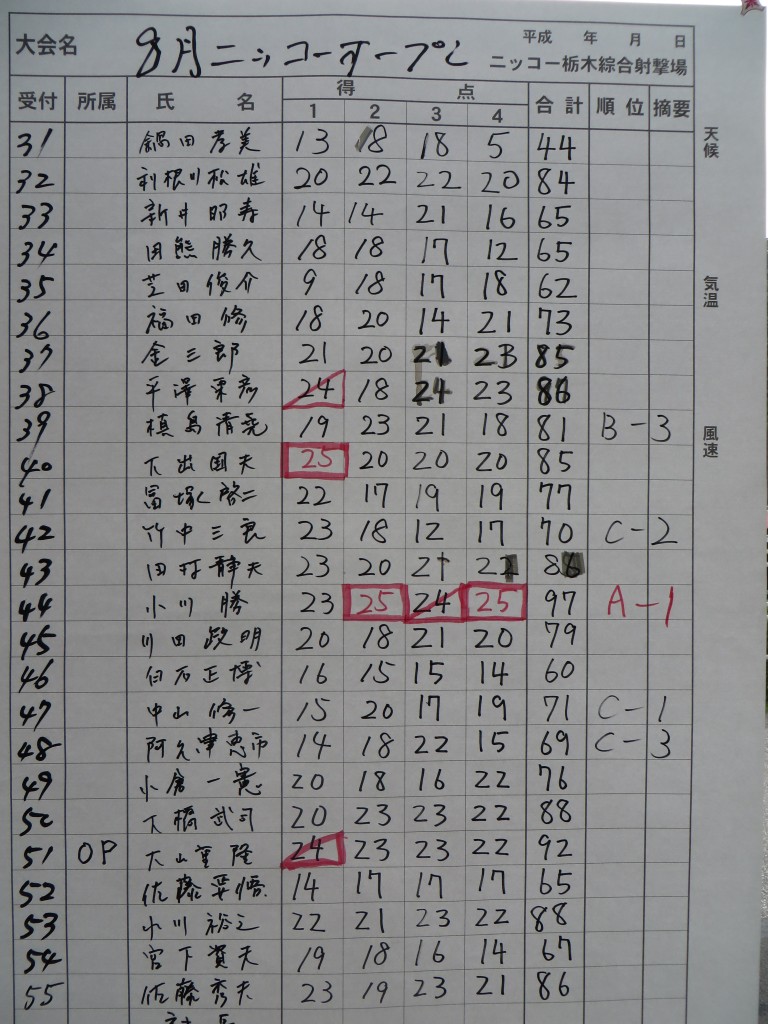 大会名 8月ニッコーオープン 平成 年 月 日
ニッコー栃木綜合射撃場
受付 所属 氏名 得点 合計 順位 摘要
1 2 3 4
天候
気温
風速
31 鍋田孝美 13 18 18 5 44
32 利根川松雄 20 22 22 20 84
33 新井昭寿 14 14 21 16 65
34 田熊勝久 18 18 17 12 65
35 芝田俊介 9 18 17 18 62
36 福田修 18 20 14 21 73
37 金三郎 21 20 21 23 85
38 平澤 24 18 24 23 86
39 槙島清 19 23 21 18 81 B-3
40 下出国夫 25 20 20 20 85
41 冨塚啓二 22 17 19 19 77
42 竹中三良 23 18 12 17 70 C-2
43 田村静夫 23 20 21 22 86
44 小川勝 23 25 24 25 97 A-1
45 川田政明 20 18 21 20 79
46 白石正博 16 15 15 14 60
47 中山修一 15 20 17 19 71 C-1
48 阿久津恵市 14 18 22 15 69 C-3
49 小倉一憲 20 18 16 22 76
50 下橋武司 20 23 23 22 88
51 OP 大山重隆 24 23 23 22 92
52 佐藤 14 17 17 17 65
53 小川裕之 22 21 23 22 88
54 宮下賀夫 19 18 16 14 67
55 佐藤秀夫 23 19 23 21 86